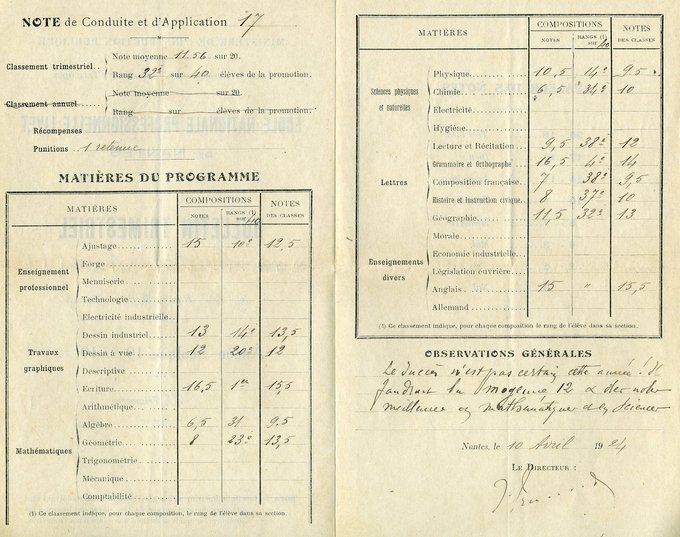 NOTE de Conduite et d'Application 17
Classement trimestriel
Note moyenne 11.56 sur 20.
Rang 32e sur 40 élèves de la promotion.
Classement annuel
Note moyenne sur 20.
Rang sur élèves de la promotion.
Récompenses
Punitions 1 retenue
MATIÈRES DU PROGRAMME
MATIÈRES COMPOSITIONS NOTES
NOTES RANGS (1) sur 40 DES CLASSES
Enseignement professionnel
Ajustage 15 10e 12,5
Forge
Menuiserie
Technologie
Electricité industrielle
Travaux graphiques
Dessin industriel 13 14e 13,5
Dessin à vue 12 20e 12
Descriptive
Ecriture 16,5 1er 15,5
Mathématiques
Arithmétique
Algèbre 6,5 31 9.5
Géométrie 8 23e 13,5
Trigonométrie
Mécanique
Comptabilité
(1) Ce classement indique, pour chaque composition, le rang de l'élève dans sa section.
MATIÈRES COMPOSITIONS NOTES
NOTES RANGS (1) sur 40 DES CLASSES
Sciences physiques et naturelles
Physique 10,5 14e 9.5
Chimie 6,5 34e 10
Electricité
Hygiène
Lettres
Lecture et Récitation 9,5 38e 12
Grammaire et Orthographe 16,5 4e 14
Composition française 7 38e 9,5
Histoire et Instruction civique 8 37e 10
Géographie 11,5 32e 13
Enseignements divers
Morale
Economie industrielle
Législation ouvrière
Anglais 15 " 15,5
Allemand
(1) Ce classement indique, pour chaque composition le rang de l'élève dans sa section.
OBSERVATIONS GÉNÉRALES
Le succès n'est pas certain cette année ! Il
faudrait la moyenne 12 & des notes
meilleures en mathématiques & en Sciences
Nantes, le 10 Avril 1924
LE DIRECTEUR :